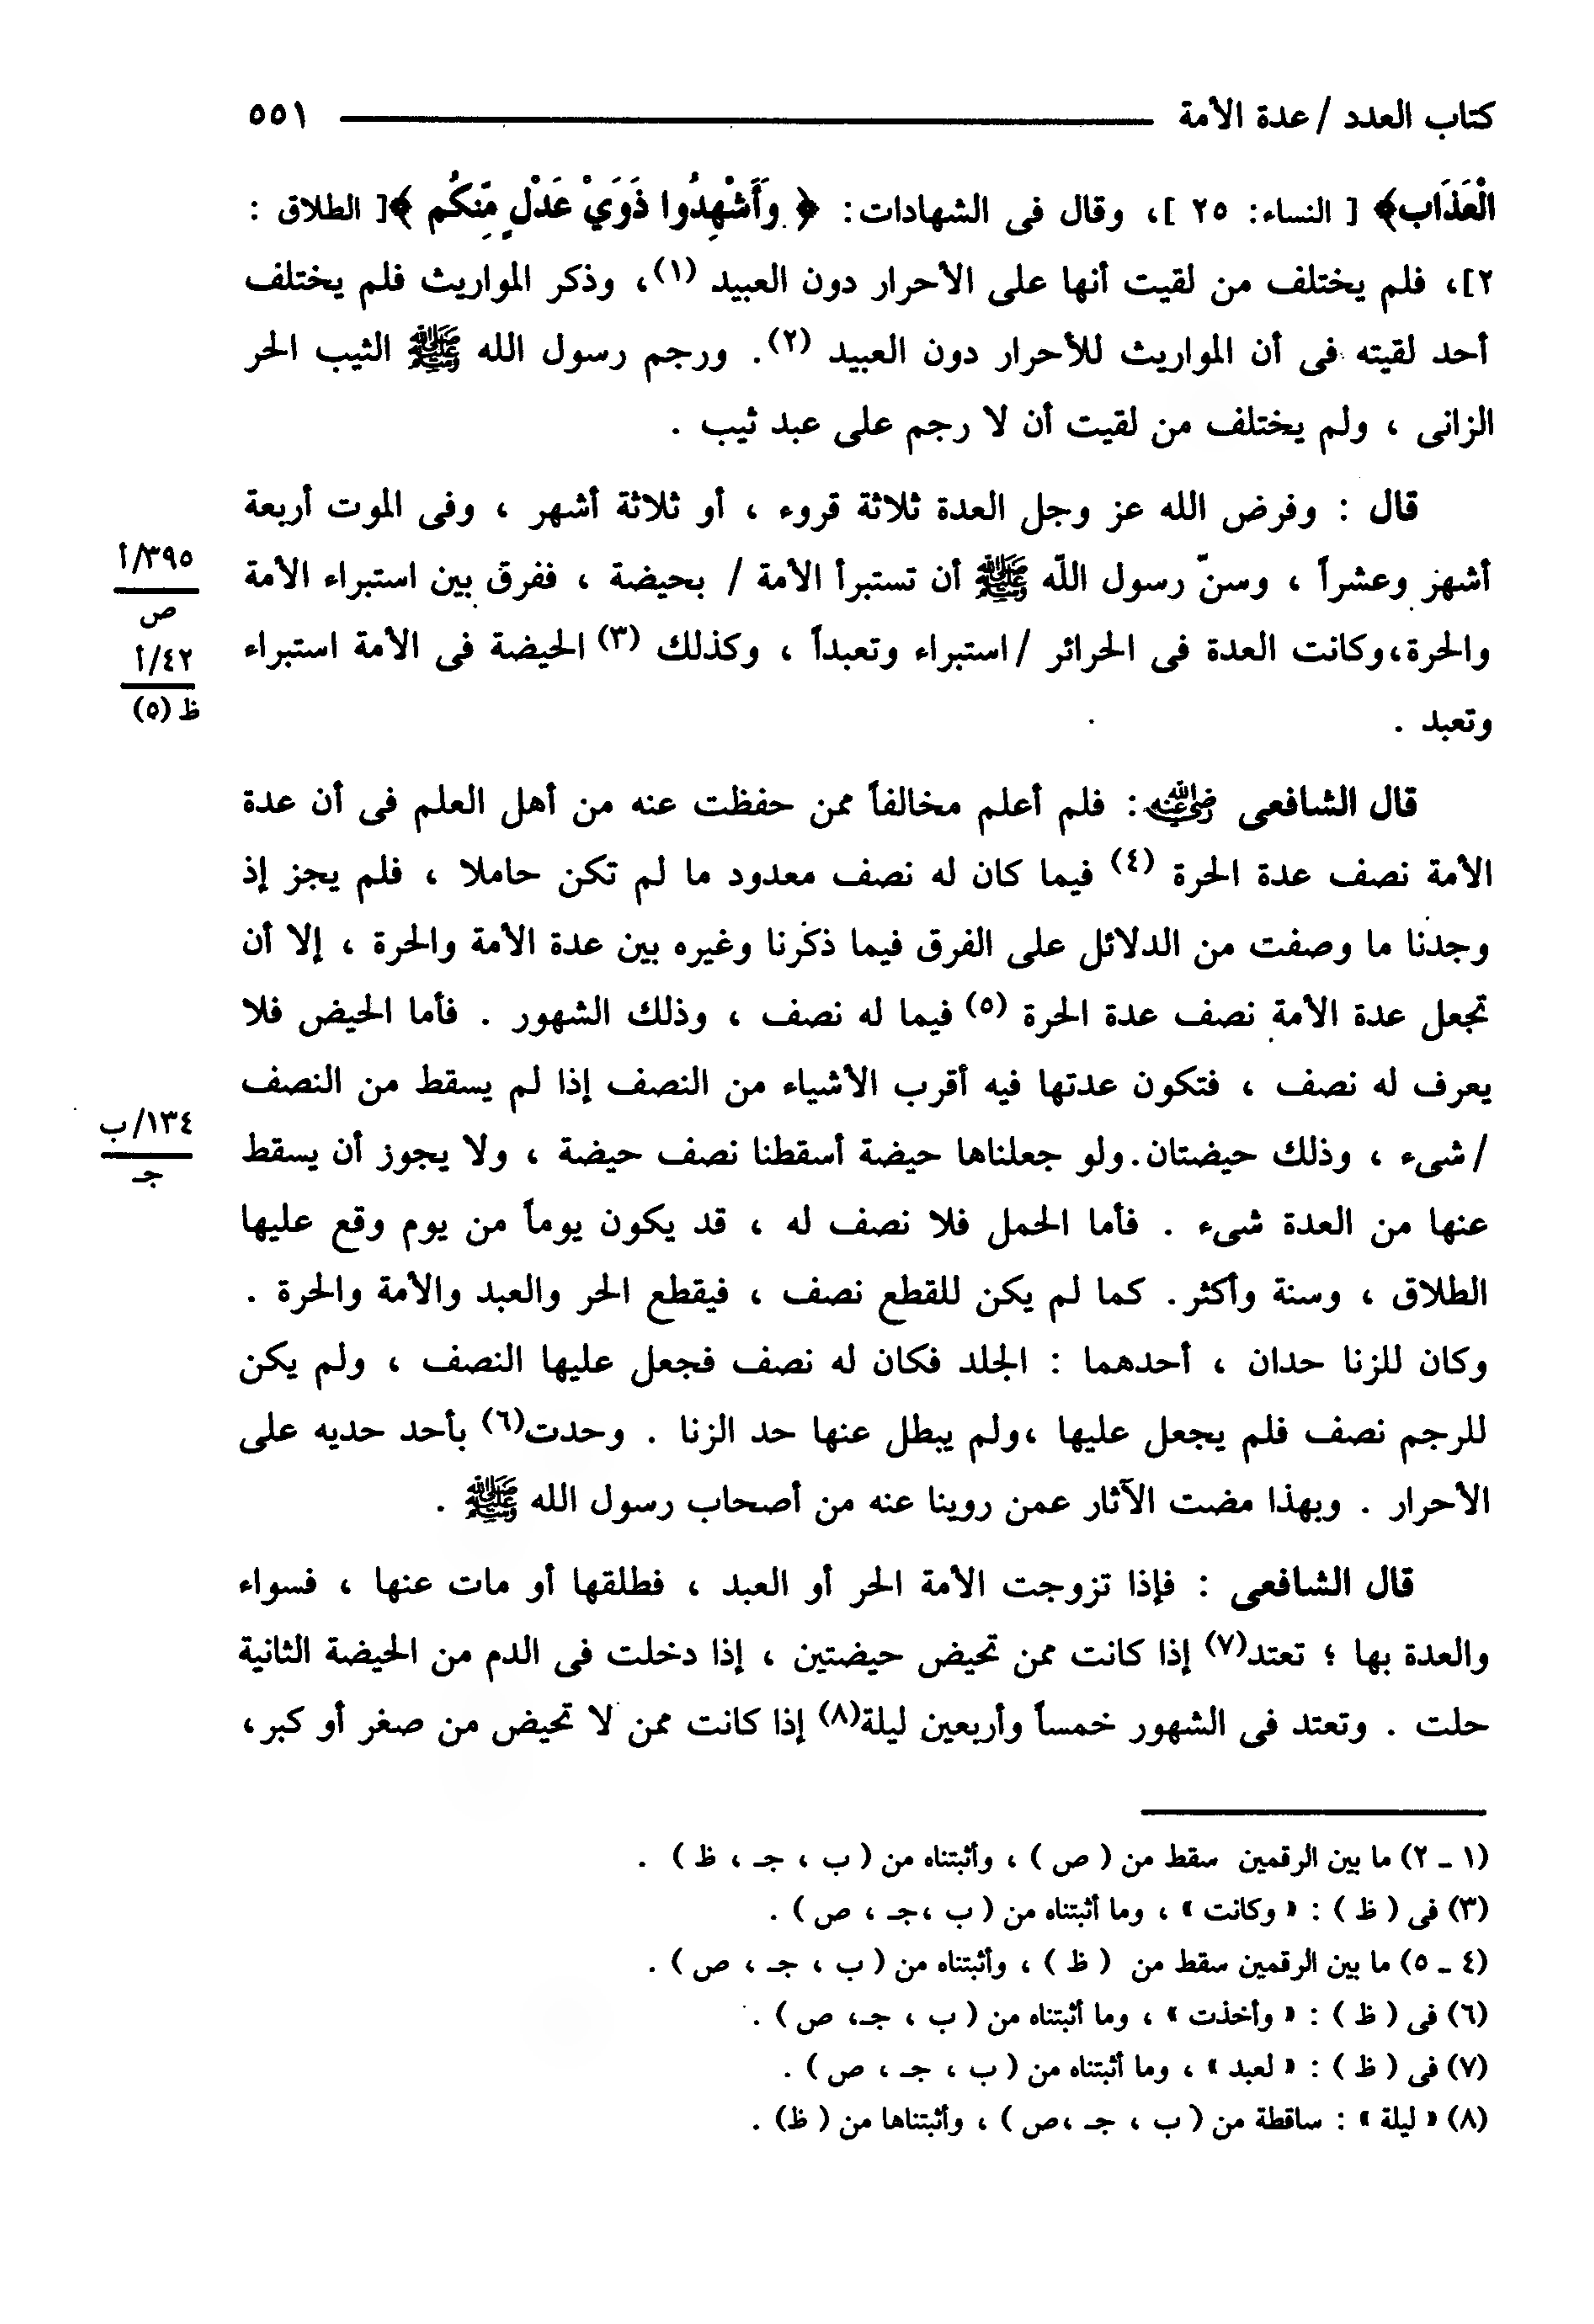 كتاب العدد / عدة الأمة ٥٥١
الْعَذَابِ﴾ [ النساء: ٢٥ ]، وقال فى الشهادات: ﴿ وَأَشْهِدُوا ذَوَيْ عَدْلٍ مِّنكُمْ ﴾[ الطلاق :
٢]، فلم يختلف من لقيت أنها على الأحرار دون العبيد (١)، وذكر المواريث فلم يختلف
أحد لقيته فى أن المواريث للأحرار دون العبيد (٢). ورجم رسول الله ﷺ الثيب الحر
الزانى ، ولم يختلف من لقيت أن لا رجم على عبد ثيب .
قال : وفرض الله عز وجل العدة ثلاثة قروء ، أو ثلاثة أشهر ، وفى الموت أربعة
أشهر وعشراً ، وسنّ رسول اللّه ﷺ أن تستبرأ الأمة / بحيضة ، ففرق بين استبراء الأمة
٣٩٥/أ
ص
والحرة،وكانت العدة فى الحرائر /استبراء وتعبداً ، وكذلك (٣) الحيضة فى الأمة استبراء
٤٢/أ
ظ (٥)
وتعبد .
قال الشافعى رضي الله عنه: فلم أعلم مخالفاً ممن حفظت عنه من أهل العلم فى أن عدة
الأمة نصف عدة الحرة (٤) فيما كان له نصف معدود ما لم تكن حاملا ، فلم يجز إذ
وجدنا ما وصفت من الدلائل على الفرق فيما ذكرنا وغيره بين عدة الأمة والحرة ، إلا أن
تجعل عدة الأمة نصف عدة الحرة (٥) فيما له نصف ، وذلك الشهور . فأما الحيض فلا
يعرف له نصف ، فتكون عدتها فيه أقرب الأشياء من النصف إذا لم يسقط من النصف
١٣٤/ب
جـ
/شىء ، وذلك حيضتان.ولو جعلناها حيضة أسقطنا نصف حيضة ، ولا يجوز أن يسقط
عنها من العدة شىء . فأما الحمل فلا نصف له ، قد يكون يوماً من يوم وقع عليها
الطلاق ، وسنة وأكثر. كما لم يكن للقطع نصف ، فيقطع الحر والعبد والأمة والحرة .
وكان للزنا حدان ، أحدهما : الجلد فكان له نصف فجعل عليها النصف ، ولم يكن
للرجم نصف فلم يجعل عليها ،ولم يبطل عنها حد الزنا . وحدت(٦) بأحد حديه على
الأحرار . وبهذا مضت الآثار عمن روينا عنه من أصحاب رسول الله ﷺ .
قال الشافعى : فإذا تزوجت الأمة الحر أو العبد ، فطلقها أو مات عنها ، فسواء
والعدة بها ؛ تعتد(٧) إذا كانت ممن تحيض حيضتين ، إذا دخلت فى الدم من الحيضة الثانية
حلت . وتعتد فى الشهور خمساً وأربعين ليلة(٨) إذا كانت ممن لا تحيض من صغر أو كبر،
(١ - ٢) ما بين الرقمين سقط من ( ص ) ، وأثبتناه من ( ب ، جـ ، ظ ) .
(٣) فى ( ظ ) : « وكانت » ، وما أثبتناه من ( ب ،جـ ، ص ) .
(٤ - ٥) ما بين الرقمين سقط من ( ظ ) ، وأثبتناه من ( ب ، جـ ، ص ) .
(٦) فى ( ظ ) : « وأخذت » ، وما أثبتناه من ( ب ، جـ، ص ) .
(٧) فى ( ظ ) : « لعبد » ، وما أثبتناه من ( ب ، جـ ، ص ) .
(٨) « ليلة » : ساقطة من ( ب ، جـ ،ص ) ، وأثبتناها من ( ظ) .